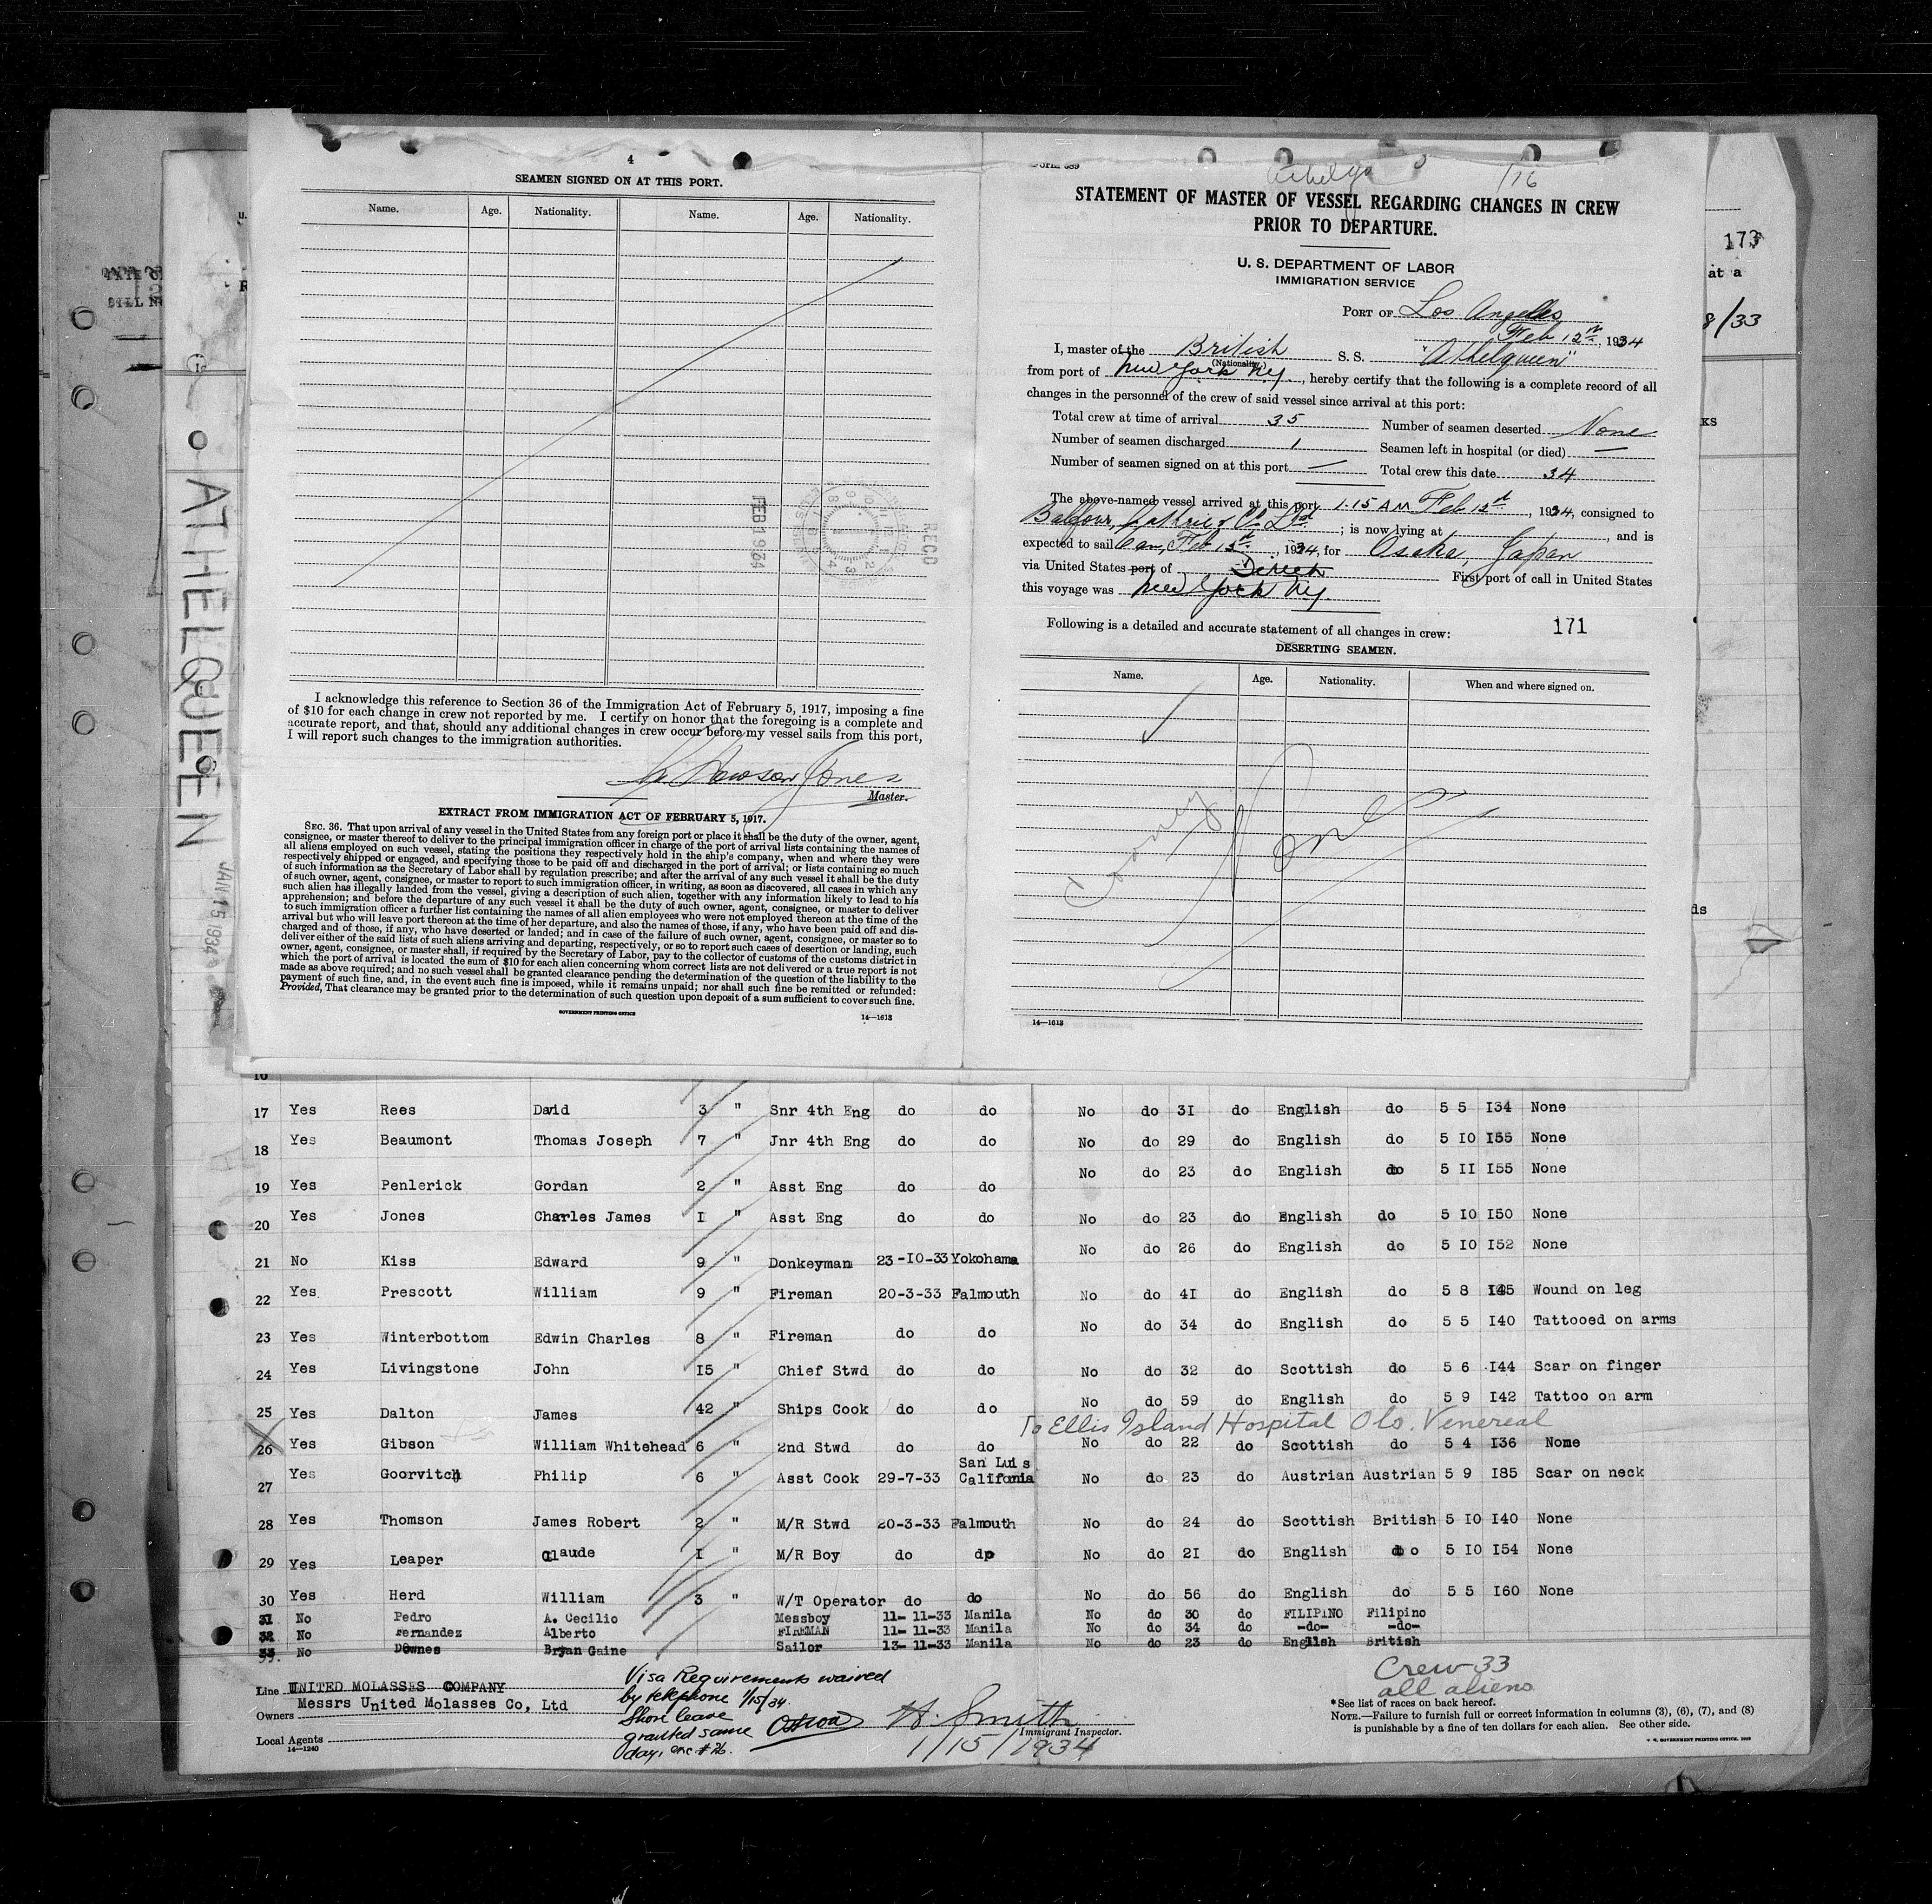 4
SEAMEN SIGNED ON AT THIS PORT.
Name. Age. Nationality. Name. Age. Nationality.
REC'D
FEB 1 1934
I acknowledge this reference to Section 36 of the Immigration Act of February 5, 1917, imposing a fine
of $10 for each change in crew not reported by me. I certify on honor that the foregoing is a complete and
accurate report, and that, should any additional changes in crew occur before my vessel sails from this port,
I will report such changes to the immigration authorities.
Jones
Master.
EXTRACT FROM IMMIGRATION ACT OF FEBRUARY 5, 1917.
SEC. 36. That upon arrival of any vessel in the United States from any foreign port or place it shall be the duty of the owner, agent,
consignee, or master thereof to deliver to the principal immigration officer in charge of the port of arrival lists containing the names of
all aliens employed on such vessel, stating the positions they respectively hold in the ship's company, when and where they were
respectively shipped or engaged, and specifying those to be paid off and discharged in the port of arrival; or lists containing so much
of such information as the Secretary of Labor shall by regulation prescribe; and after the arrival of any such vessel it shall be the duty
of such owner, agent, consignee, or master to report to such immigration officer, in writing, as soon as discovered, all cases in which any
such alien has illegally landed from the vessel, giving a description of such alien, together with any information likely to lead to his
apprehension; and before the departure of any such vessel it shall be the duty of such owner, agent, consignee, or master to deliver
to such immigration officer a further list containing the names of all alien employees who were not employed thereon at the time of the
arrival but who will leave port thereon at the time of her departure, and also the names of those, if any, who have been paid off and dis-
charged and of those, if any, who have deserted or landed; and in case of the failure of such owner, agent, consignee, or master so to
deliver either of the said lists of such aliens arriving and departing, respectively, or so to report such cases of desertion or landing, such
owner, agent, consignee, or master shall, if required by the Secretary of Labor, pay to the collector of customs of the customs district in
which the port of arrival is located the sum of $10 for each alien concerning whom correct lists are not delivered or a true report is not
made as above required; and no such vessel shall be granted clearance pending the determination of the question of the liability to the
payment of such fine, and, in the event such fine is imposed, while it remains unpaid; nor shall such fine be remitted or refunded:
Provided, That clearance may be granted prior to the determination of such question upon deposit of a sum sufficient to cover such fine.
GOVERNMENT PRINTING OFFICE 14—1613
Form 689
1/16
STATEMENT OF MASTER OF VESSEL REGARDING CHANGES IN CREW
PRIOR TO DEPARTURE.
U. S. DEPARTMENT OF LABOR
IMMIGRATION SERVICE
PORT OF Los Angelles
Feb 12th, 1934
I, master of the British S. S. "Athelqueen"
(Nationality)
from port of New York Ny, hereby certify that the following is a complete record of all
changes in the personnel of the crew of said vessel since arrival at this port:
Total crew at time of arrival 35 Number of seamen deserted None
Number of seamen discharged 1 Seamen left in hospital (or died) —
Number of seamen signed on at this port — Total crew this date 34
The above-named vessel arrived at this port 1.15 AM Feb 12th, 1934, consigned to
Balfour, Guthrie & Co Ltd; is now lying at , and is
expected to sail Feb, 1934, for Osaka, Japan
via United States port of Direct First port of call in United States
this voyage was New York Ny.
Following is a detailed and accurate statement of all changes in crew: 171
DESERTING SEAMEN.
Name. Age. Nationality. When and where signed on.
None
14—1613
173
at a
8/33
ATHELQUEEN
JAN 15 1934
16
17 Yes Rees David 3 " Snr 4th Eng do do No do 31 do English do 5 5 134 None
18 Yes Beaumont Thomas Joseph 7 " Jnr 4th Eng do do No do 29 do English do 5 10 155 None
19 Yes Penlerick Gordan 2 " Asst Eng do do No do 23 do English do 5 11 155 None
20 Yes Jones Charles James 1 " Asst Eng do do No do 23 do English do 5 10 150 None
21 No Kiss Edward 9 " Donkeyman 23-10-33 Yokohama No do 26 do English do 5 10 152 None
22 Yes Prescott William 9 " Fireman 20-3-33 Falmouth No do 41 do English do 5 8 145 Wound on leg
23 Yes Winterbottom Edwin Charles 8 " Fireman do do No do 34 do English do 5 5 140 Tattooed on arms
24 Yes Livingstone John 15 " Chief Stwd do do No do 32 do Scottish do 5 6 144 Scar on finger
25 Yes Dalton James 42 " Ships Cook do do No do 59 do English do 5 9 142 Tattoo on arm
To Ellis Island Hospital Venereal
26 Yes Gibson William Whitehead 6 " 2nd Stwd do do No do 22 do Scottish do 5 4 136 None
27 Yes Goorvitch Philip 6 " Asst Cook 29-7-33 San Luis California No do 23 do Austrian Austrian 5 9 185 Scar on neck
28 Yes Thomson James Robert 2 " M/R Stwd 20-3-33 Falmouth No do 24 do Scottish British 5 10 140 None
29 Yes Leaper Claude 1 " M/R Boy do do No do 21 do English do 5 10 154 None
30 Yes Herd William 3 " W/T Operator do do No do 56 do English do 5 5 160 None
31 No Pedro A. Cecilio Messboy 11-11-33 Manila No do 30 do FILIPINO Filipino
32 No Fernandez Alberto FIREMAN 11-11-33 Manila No do 34 do -do- -do-
33 No Downes Bryan Gaine Sailor 13-11-33 Manila No do 23 do English British
Line UNITED MOLASSES COMPANY
Owners Messrs United Molasses Co, Ltd
Local Agents
14—1240
Visa Requirements waived
by telephone 1/15/34.
Shore leave
granted same
day, exc #26.
H. Smith
Immigrant Inspector.
1/15/1934
Crew-33
all aliens
*See list of races on back hereof.
NOTE.—Failure to furnish full or correct information in columns (3), (6), (7), and (8)
is punishable by a fine of ten dollars for each alien. See other side.
U. S. GOVERNMENT PRINTING OFFICE